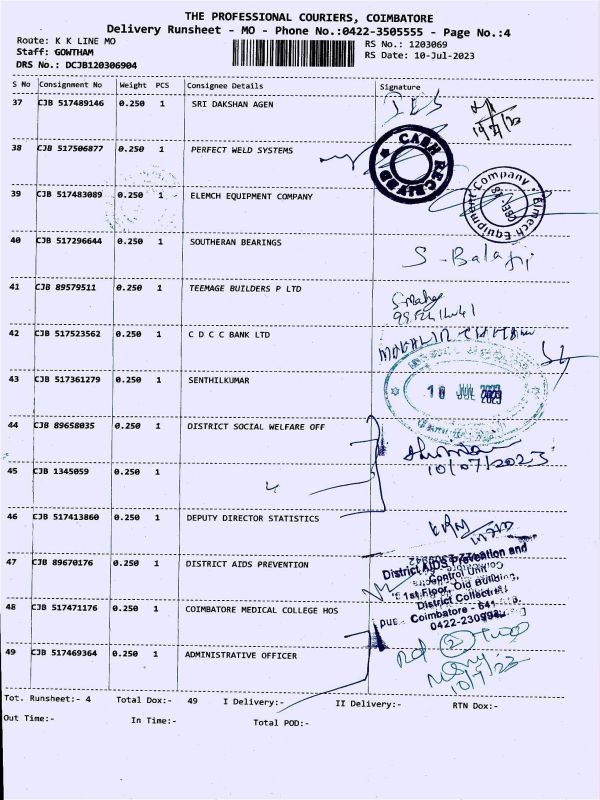 THE PROFESSIONAL COURIERS, COIMBATORE
Delivery Runsheet - MO - Phone No.:0422-3505555 - Page No.:4
Route: K K LINE MO
RS No.: 1203069
Staff: GOWTHAM
RS Date: 10-Jul-2023
DRS No.: DCJB120306904
S No Consignment No Weight PCS Consignee Details Signature
37 CJB 517489146 0.250 1 SRI DAKSHAN AGEN
38 CJB 517506877 0.250 1 PERFECT WELD SYSTEMS
CASH RECEIVED
39 CJB 517483089 0.250 1 ELEMCH EQUIPMENT COMPANY
Elmech Equipment Company
40 CJB 517296644 0.250 1 SOUTHERAN BEARINGS
S. Balaji
41 CJB 89579511 0.250 1 TEEMAGE BUILDERS P LTD
42 CJB 517523562 0.250 1 C D C C BANK LTD
43 CJB 517361279 0.250 1 SENTHILKUMAR
10 JUL 2023
44 CJB 89658035 0.250 1 DISTRICT SOCIAL WELFARE OFF
10/07/2023
45 CJB 1345059 0.250 1
46 CJB 517413860 0.250 1 DEPUTY DIRECTOR STATISTICS
47 CJB 89670176 0.250 1 DISTRICT AIDS PREVENTION
District AIDS Prevention and
Control Unit
1st Floor, Old Building,
District Collector
Coimbatore - 641
48 CJB 517471176 0.250 1 COIMBATORE MEDICAL COLLEGE HOS
49 CJB 517469364 0.250 1 ADMINISTRATIVE OFFICER
10/7/23
Tot. Runsheet:- 4 Total Dox:- 49 I Delivery:- II Delivery:- RTN Dox:-
Out Time:- In Time:- Total POD:-